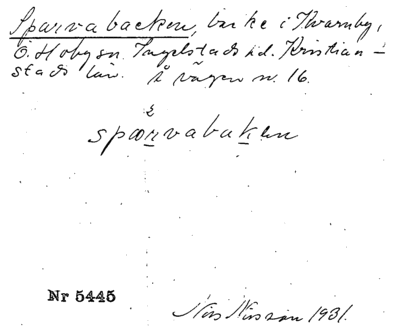 Sparvabacken, backe i Kvarnby,
Ö. Hoby sn. Ingelstads hd. Kristian-
stads län. å vägen n. 16.
spærvabaken
Nr 5445
Nils Nilsson 1931.